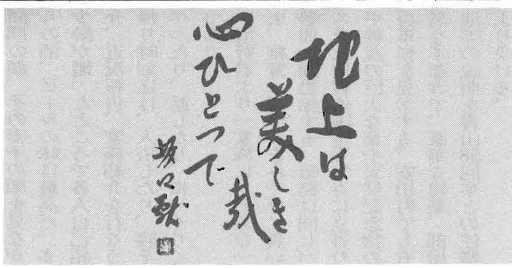 地上は
美しき
哉
心ひとつで
坂口献